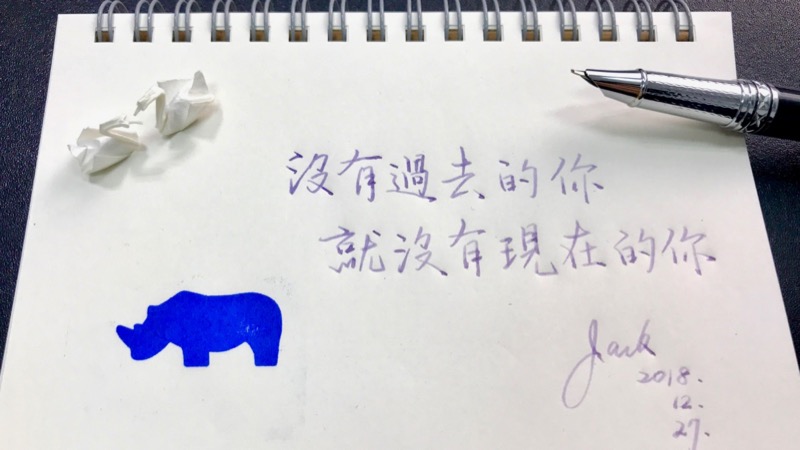 沒有過去的你
就沒有現在的你
Jack
2018.
12.
27.